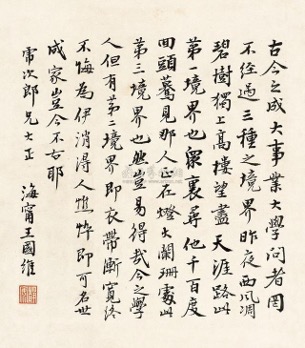 古今之成大事業大學問者罔
不經過三種之境界昨夜西風凋
碧樹獨上高樓望盡天涯路此
第一境界也衆裏尋他千百度
回頭驀見那人正在燈火闌珊處此
第三境界也然豈易得哉今之學
人但有第二境界即衣帶漸寬終
不悔為伊消得人憔悴即可名世
成家豈今不古耶
甯次郎兄大正
海甯王國維